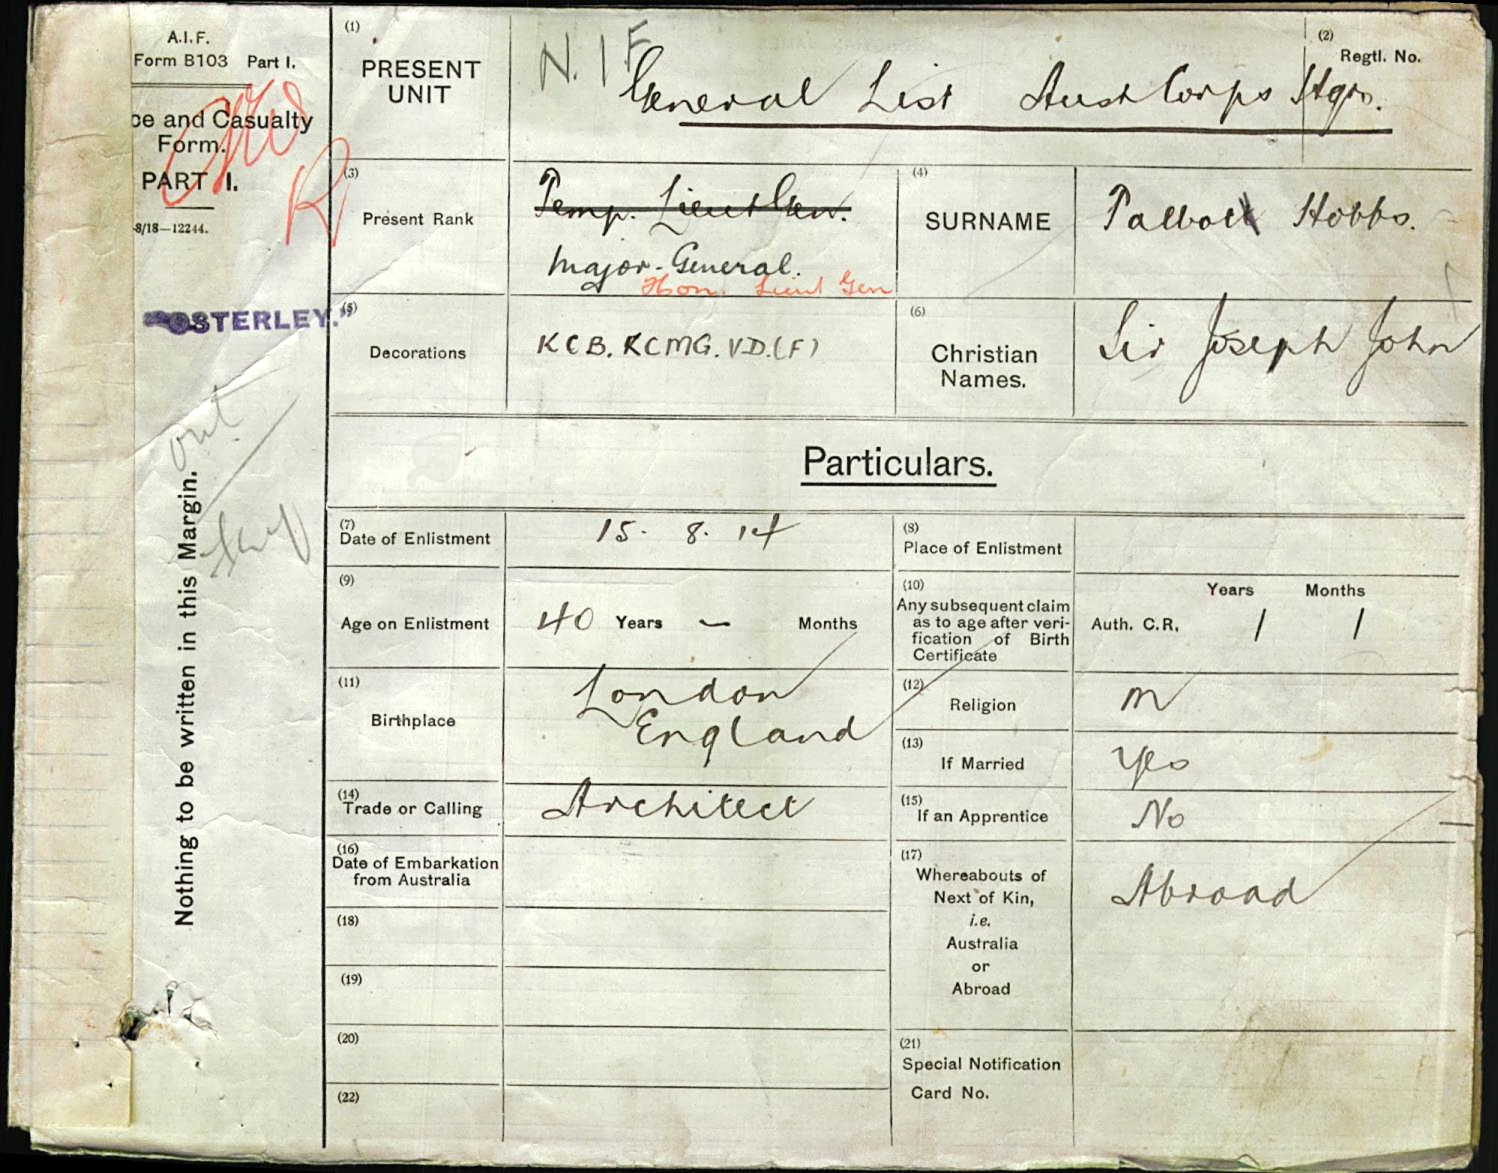 A.I.F.
Form B103 Part I.
oe and Casualty
Form.
PART I.
8/18—12244.
R
"OSTERLEY."
out
Nothing to be written in this Margin.
(1)
PRESENT
UNIT
N.I.F
General List Aust Corps Hqrs.
(2)
Regtl. No.
(3)
Present Rank
Temp. Lieut Gen.
Major-General.
Hon. Lieut Gen
(4)
SURNAME
Talbott Hobbs.
(5)
Decorations
KCB. KCMG. V.D.(F)
(6)
Christian
Names.
Sir Joseph John
Particulars.
(7)
Date of Enlistment
15. 8. 14
(8)
Place of Enlistment
(9)
Age on Enlistment
40 Years — Months
(10)
Any subsequent claim
as to age after veri-
fication of Birth
Certificate
Years Months
Auth. C.R. / /
(11)
Birthplace
London
England
(12)
Religion
M
(13)
If Married
Yes
(14)
Trade or Calling
Architect
(15)
If an Apprentice
No
(16)
Date of Embarkation
from Australia
(17)
Whereabouts of
Next of Kin,
i.e.
Australia
or
Abroad
Abroad
(18)
(19)
(20)
(21)
Special Notification
Card No.
(22)